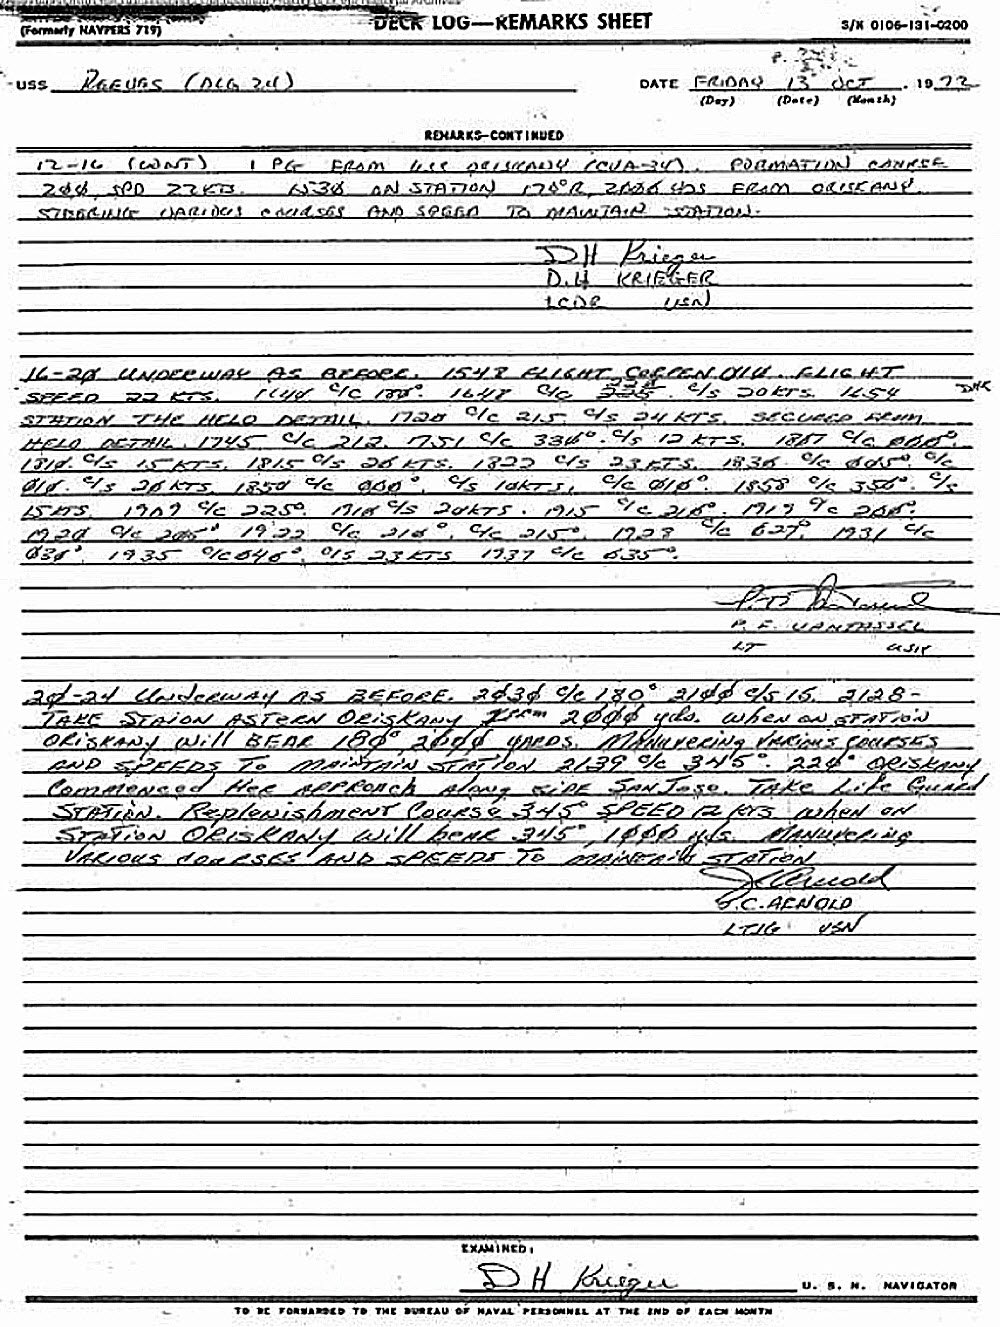 DECK LOG—REMARKS SHEET
(Formerly NAVPERS 719)
S/N 0106-131-0200
USS REEVES (DLG 24) DATE FRIDAY 13 OCT , 1972
(Day) (Date) (Month)
REMARKS—CONTINUED
12-16 (CONT) 1 PG FROM USS ORISKANY (CVA-34). FORMATION COURSE
200, SPD 22 KTS. 1530 ON STATION 170°R, 2000 YDS FROM ORISKANY.
STEERING VARIOUS COURSES AND SPEED TO MAINTAIN STATION.
D H Krieger
D. H KRIEGER
LCDR USN
16-20 UNDERWAY AS BEFORE. 1548 FLIGHT CORPEN FLIGHT
SPEED 22 KTS. 1644 C/C 180°. 1648 C/C 225 . C/S 20 KTS. 1654 DHK
STATION THE HELO DETAIL. 1720 C/C 215 C/S 24 KTS. SECURED FROM
HELO DETAIL. 1745 C/C 212. 1751 C/C 330°. C/S 12 KTS. 1807 C/C 000°.
1810. C/S 15 KTS. 1815 C/S 20 KTS. 1822 C/S 23 KTS. 1836 C/C 005° C/C
010. C/S 20 KTS. 1850 C/C 000°, C/S 10KTS, C/C 010°. 1858 C/C 350°. C/S
15KTS. 1909 C/C 225°. 1910 C/S 20KTS. 1915 C/C 210°. 1919 C/C 200°.
1920 C/C 205° 1922 C/C 210°, C/C 215°. 1928 C/C 027°, 1931 C/C
030°. 1935 C/C 040°, C/S 23 KTS 1937 C/C 035°.
P. F. VANTASSEL
LT USN
20-24 Underway AS BEFORE. 2030 C/C 180° 2100 C/S 15. 2128-
TAKE STAION ASTERN ORISKANY from 2000 yds. when on STATION
ORISKANY will BEAR 180° 2000 YARDS. MANUVERING VARIOUS COURSES
AND SPEEDS TO MAINTAIN STATION 2139 C/C 345°. 220 ORISKANY
Commenced Her APPROACH Along SIDE SAN JOSE. TAKE Life Guard
STATION. Replenishment Course 345° SPEED 12 KTS when on
STATION ORISKANY will bear 345° 1000 yds. MANUVERING
VARIOUS COURSES AND SPEEDS TO MAINTAIN STATION
J C Arnold
J. C. ARNOLD
LTJG USN
EXAMINED:
D H Krieger U. S. N. NAVIGATOR
TO BE FORWARDED TO THE BUREAU OF NAVAL PERSONNEL AT THE END OF EACH MONTH